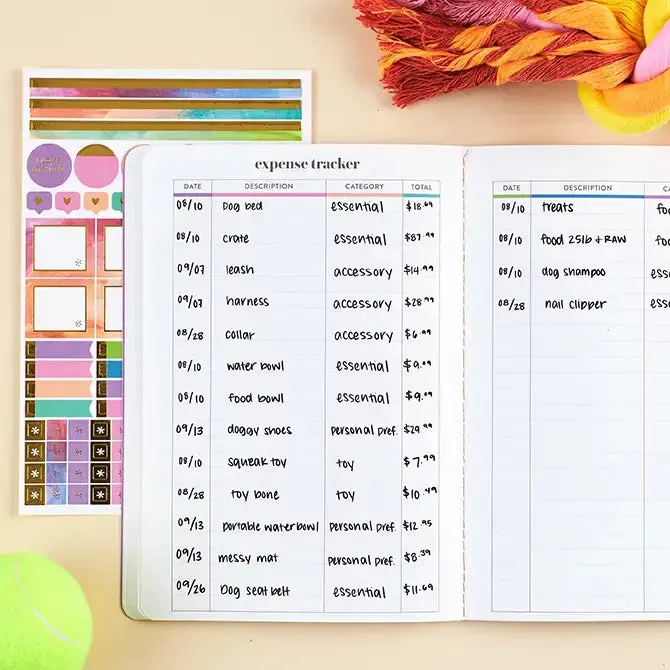 expense tracker
DATE DESCRIPTION CATEGORY TOTAL
08/10 Dog bed essential $18.69
08/10 crate essential $87.99
09/07 leash accessory $14.99
09/07 harness accessory $28.99
08/28 collar accessory $6.99
08/10 water bowl essential $9.09
08/10 food bowl essential $9.09
09/13 doggy shoes personal pref. $29.99
08/10 squeak toy toy $7.99
08/28 toy bone toy $10.49
09/13 portable waterbowl personal pref. $12.95
09/13 messy mat personal pref. $8.39
09/26 Dog seat belt essential $11.69
DATE DESCRIPTION
08/10 treats
08/10 food 25lb + RAW
08/10 dog shampoo
08/28 nail clipper